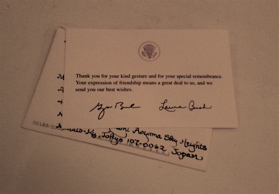 Thank you for your kind gesture and for your special remembrance.
Your expression of friendship means a great deal to us, and we
send you our best wishes.
Laura Bush
Aoyama Sky Heights
Tokyo 107-0062 Japan